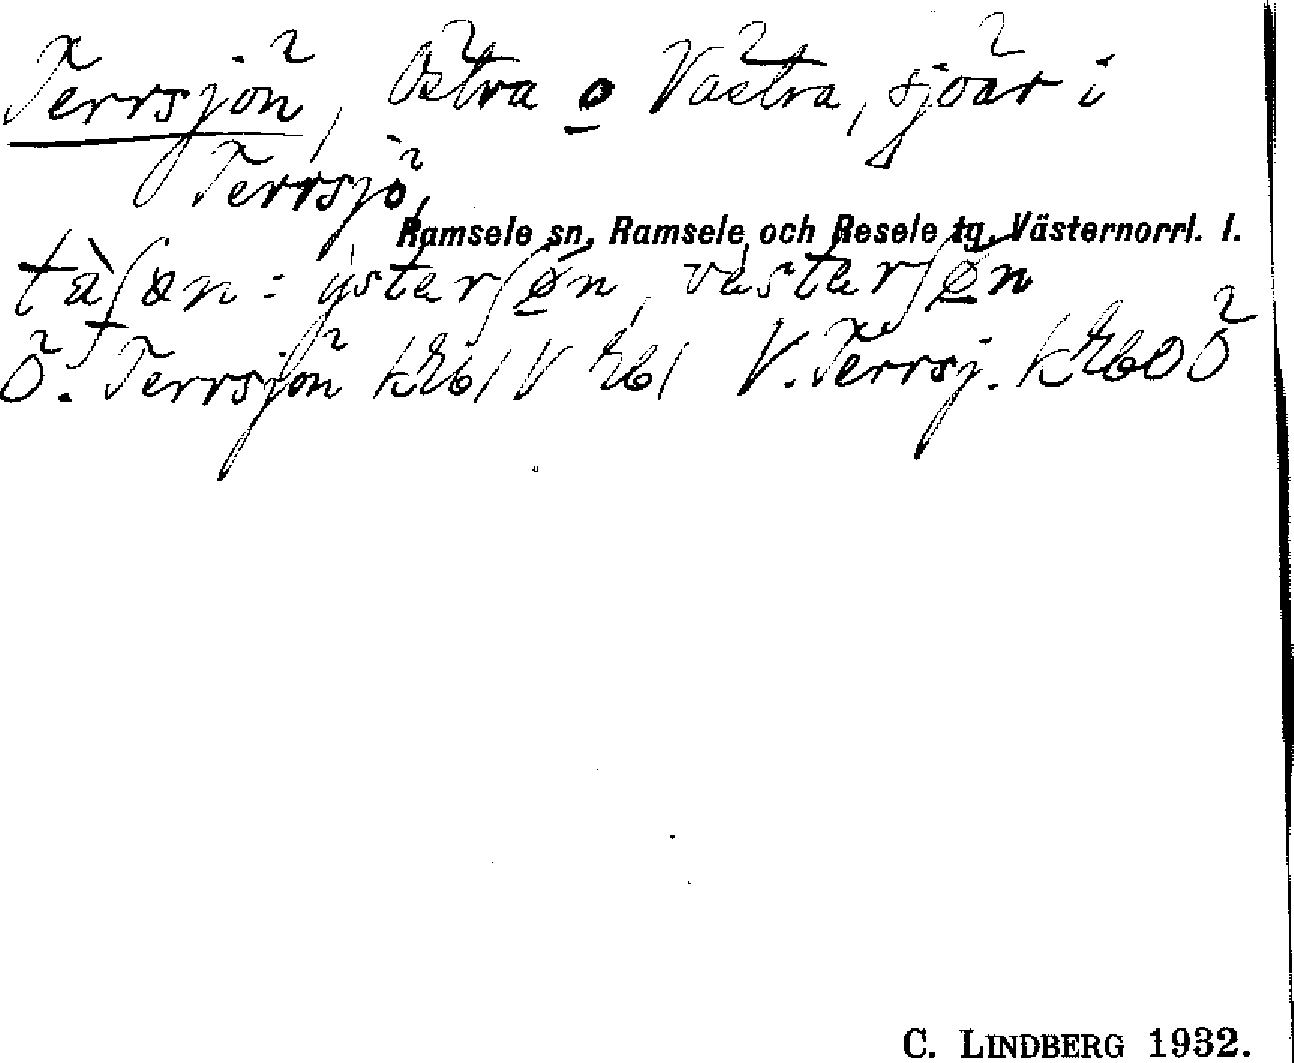 Terrsjön, Östra o Västra, sjöar i
Terrsjö,
Ramsele sn, Ramsele och Resele tg, Västernorrl. l.
tàʃæn: ýstarʃøn, vàstarʃøn
Ö. Terrsjön V V. Terrsj. Ö
C. LINDBERG 1932.